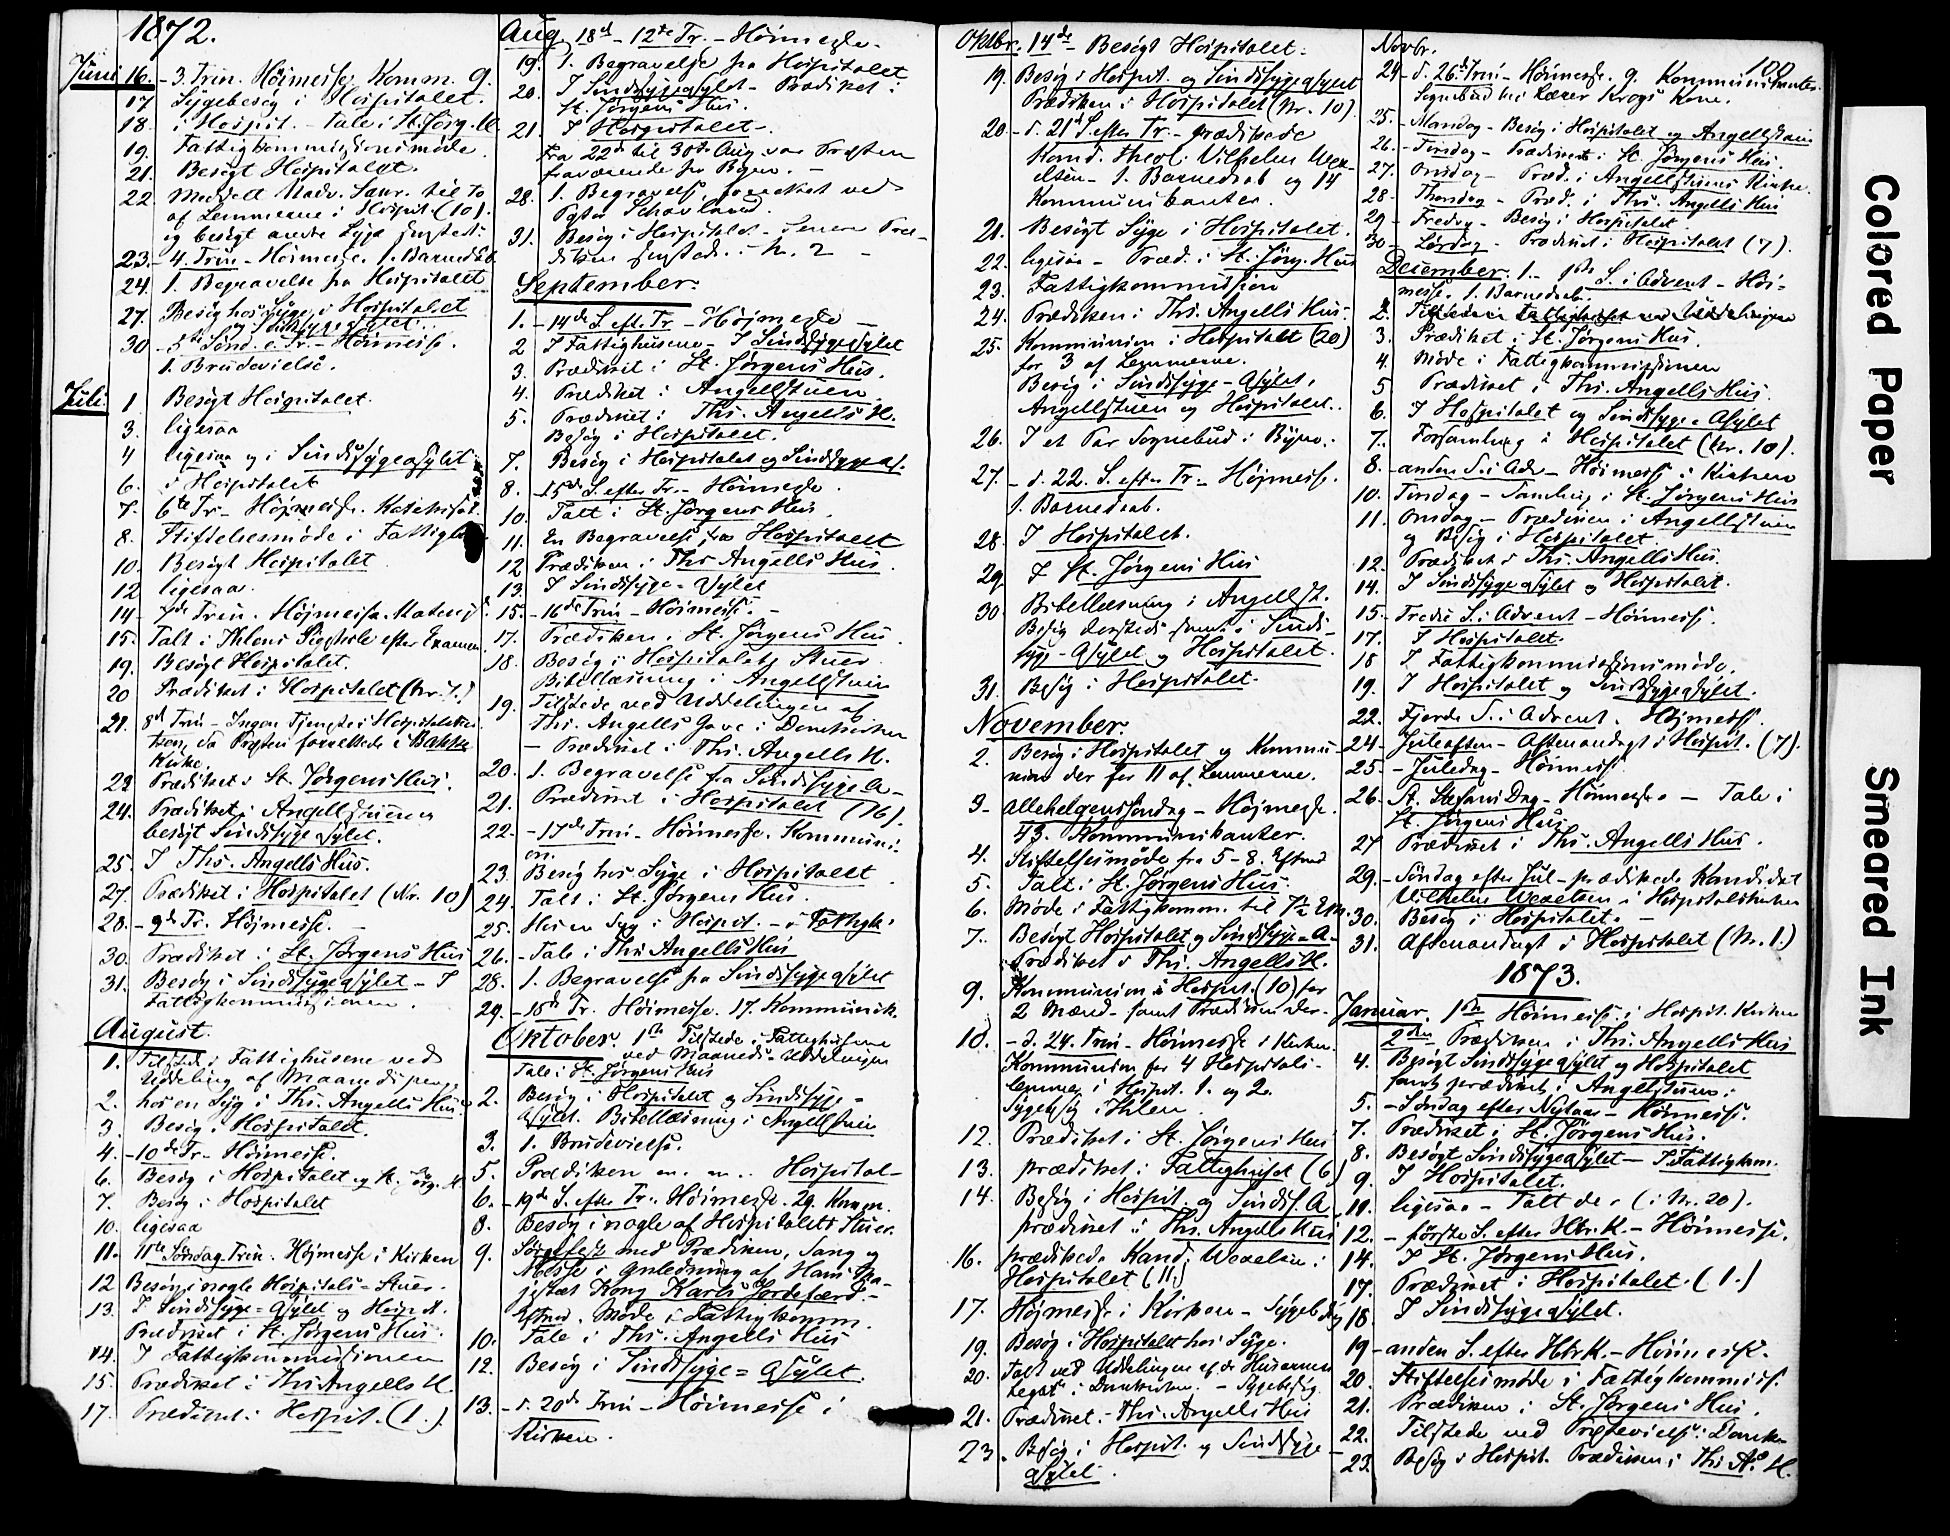 1872.
Juni 16. - 3. Trin. Høimesse. Komm. 9.
17 Sygebesøg i Hospitalet.
18. i Hospit. - Tale i St. Jørg. H.
19. Fattigkommissionsmøde.
21. Besøgt Hospitalet.
22. Meddelt Nadv. Sacr. til to
af Lemmerne i Hospit. (10).
og besøgt andre Syge
23. - 4. Trin. - Høimesse. 1. Barnedåb
24. 1. Begravelse fra Hospitalet
27. Besøg hos Syge i Hospitalet
og Sindssygeasylet.
30 - 5te Sønd. e. Tr. - Høimesse.
1. Brudevielse.
Juli 1 Besøgt Hospitalet.
3. ligesaa
4 ligesaa og i Sindssygeasylet
6. i Hospitalet
7. 6te Tr - Højmesse. Katekisat.
8. Stiftelsesmøde i Fattigk
10. Besøgt Hospitalet
12 ligesaa.
14 - 7de Trin. Højmesse.
15. Talt i Ihlens Pigeskole efter Examen
19. Besøgt Hospitalet.
20 Prædiket i Hospitalet (Nr. 7.)
21. 8d Trin - Ingen Tjeneste i Hospitalskir
ken, da Præsten forrettede i Bakke
Kirke.
23 Prædiket i St. Jørgens Hus.
24. Prædiket i Angellstuen
besøgt Sindssygeasylet.
25. I Ths. Angells Hus.
27. Prædiket i Hospitalet (Nr. 10)
28. - 9de Tr. Højmesse. -
30. Prædiket i St. Jørgens Hus
31. Besøg i Sindssygeasylet - I
Fattigkommissionen.
August.
1. Tilstede i Fattighusene ved
Uddeling af Maanedspenge
2. hos en Syg i Ths. Angells Hus
3. Besøg i Hospitalet.
4. - 10de Tr. Høimesse.
6. Besøg i Hospitalet og St. Jørg. H
7. Besøg i Hospitalet
10. ligesaa
11. 11te Søndag Trin. Højmesse i Kirken
12 Besøg i nogle Hospitals-Stuer.
13. I Sindssyge-Asylet og Hospit.
Prædiket i St. Jørgens Hus.
14. I Fattigkommissionen
15. Prædiket i Ths. Angells H.
17. Prædiket i Hospit. (1.)
Aug. 18d - 12te Tr. - Høimesse.
19. 1. Begravelse fra Hospitalet
20. I Sindssygeasylet - Prædiket i
St. Jørgens Hus.
21. I Hospitalet -
Fra 22d til 30te Aug. var Præsten
fraværende fra Byen. -
28. 1. Begravelse forrettet ved
Pastor Schavland.
31. Besøg i Hospitalet - Senere Præ-
diken sammesteds i Nr. 2 -
September.
1. - 14de S. eft. Tr - Højmesse
2 I Fattighusene - I Sindssygeasylet
3. Prædiket i St. Jørgens Hus.
4. Prædiket i Angellstuen
5. Prædiket i Ths. Angells H.
Besøg i Hospitalet.
7. Besøg i Hospitalet og Sindssygeas.
8. 15de S. efter Tr. - Høimesse.
10. Talt i St. Jørgens Hus.
11. En Begravelse fra Hospitalet
12 Prædiken i Ths Angells Hus.
13. I Sindssyge-Asylet
15. - 16de Trin - Høimesse. -
17. Prædiken i St. Jørgens Hus
18. Besøg i Hospitalets Stuer.
Bibellæsning i Angellstuen
19. Tilstede ved Uddelingen af
Ths. Angells Gave i Domkirken
- Prædiket i Ths. Angells H.
20. 1. Begravelse fra Sindssyge A-
21. Prædiket i Hospitalet (16).
22. - 17de Trin - Høimesse. Kommuni-
on.
23. Besøg hos Syge i Hospitalet
24. Talt i St. Jørgens Hus.
25. Hos en Syg i Hospit. - i Fattigk.
26. - Tale i Ths Angells Hus
28. 1. Begravelse fra Sindssygeasylet
29. - 18de Tr. Høimesse. 17. Kommunik.
Oktober. 1ste Tilstede i Fattighusene
ved Maaneds-Uddelingen
Tale i St. Jørgens Hus
2. Besøg i Hospitalet og Sindssyge-
asylet. Bibellæsning i Angellstuen
3. 1. Brudevielse.
5. Prædiken Hospital-
6. - 19de S. efter Tr. Høimesse. 29. Komm.
8. Besøg i nogle af Hospitalets Stuer.
9. Sørgefest med Prædiken, Sang og
Messe i Anledning af Hans Ma-
jestæt Kong Karls Jordefærd. -
Eftmd. Møde i Fattigkomm.
10. Tale i Ths. Angells Hus
12. Besøg i Sindssyge-Asylet.
13. - d. 20de Trin - Høimesse i
Kirken.
Oktbr. 14de - Besøgt Hospitalet.
19. Besøg i Hospit. og Sindssygeasylet
Prædiken i Hospitalet (Nr. 10).
20 - d. 21d S. efter Tr. - prædikede
Kand. theol. Vilhelm Wex-
elsen - 1. Barnedaab og 14
Kommunikanter.
21. Besøgt Syge i Hospitalet.
22. ligesaa - Præd. i St. Jørg. Hus
23. Fattigkommission
24. Prædiken i Ths. Angells Hus.
25. Kommunion i Hospitalet (20)
for 3 af Lemmerne.
Besøg i Sindssyge-Asylet,
Angellstuen og Hospitalet.
26. I et Par Sognebud i Byen.
27. - d. 22. S. efter Tr. Højmesse.
1. Barnedaab.
28. I Hospitalet.
29 I St. Jørgens Hus
30 Bibellæsning i Angellst.
Besøg dersteds samt i Sinds-
syge-Asylet og Hospitalet.
31. Besøg i Hospitalet.
November.
2. Besøg i Hospitalet og Kommu-
nion der for 11 af Lemmerne.
3 - Allehelgenssøndag - Højmesse.
43. Kommunikanter.
4. Stiftelsesmøde fra 5-8. Eftmd
5. Talt i St. Jørgens Hus.
6. Møde i Fattigkomm. til 7½ Eftm.
7. Besøgt Hospitalet og Sindssyge-A-
Prædiket i Ths. Angells H.
9. Kommunion i Hospit. (10) for
2 Mænd - samt Prædiken der -
10. - d. 24. Trin - Høimesse i Kirken.
Kommunion for 4 Hospitals-
lemmer i Hospit. 1. og 2.
Sygebesøg i Ihlen.
12. Prædiket i St. Jørgens Hus
13. prædiket i Fattighuset (6)
14. Besøg i Hospit. og Sindss. A
prædiket i Ths. Angells Hus
16. prædikede Kand. Wexelsen i
Hospitalet (11.)
17. Højmesse i Kirken - Sygebesøg
19. Besøg i Hospitalet hos Syge.
20. Talt ved Uddelingen af de Husarmes
Legat i Domkirken. - Sygebesøg.
21. Prædiket i Ths. Angells Hus
23. Besøg i Hospit. og Sindssyge-
asylet.
Novbr. 100
24 - d. 26d Trin - Høimesse. 9. Kommunikanter.
Sognebud hos Lærer Krogs Kone.
25. - Mandag - Besøg i Hospitalet og Angellstuen
26. - Tirsdag - Prædiket i St. Jørgens Hus.
27. Onsdag - Præd. i Angellstuens Kirke.
28 - Thorsdag - Præd. i Ths. Angells Hus
29 - Fredag - Besøg i Hospitalet
30 - Lørdag - Prædiket i Hospitalet (7).
December. 1. - 1ste S. i Advent - Høi-
messe. 1. Barnedaab.
2. Tilstede i Fattighuset ved Uddelingen
3. Prædiket i St. Jørgens Hus.
4. Møde i Fattigkommissionen
5 Prædiket i Ths. Angells Hus.
6. I Hospitalet og Sindssyge-Asylet
7. Forsamling i Hospitalet (Nr. 10).
8. - anden S. i Adv - Høimesse i Kirken
10. Tirsdag - Samling i St. Jørgens Hus
11. Onsdag - Prædiken i Angellstuen
og Besøg i Hospitalet
12. Prædiket i Ths. Angells Hus.
14. I Sindssygeasylet og Hospitalet.
15 - Tredie S. i Advent - Høimesse.
17. I Hospitalet.
18 I Fattigkommissionsmøde.
19. I Hospitalet og Sindssygeasylet.
22. Fjerde S. i Advent. Højmesse.
24 - Juleaften - Aftenandagt i Hospit. (7).
25. - Juledag - Høimesse
26. St. Stefans Dag - Høimesse - Tale i
St. Jørgens Hus
27 Prædiket i Ths. Angells Hus.
29. - Søndag efter Jul - prædikede Kandidat
Vilhelm Wexelsen i Hospitalskirken
30. Besøg i Hospitalet. -
31. Aftenandagt i Hospitalet (Nr. 1.)
1873.
Januar. 1ste Høimesse i Hospit. Kirken
2den Prædiken i Ths. Angells Hus
4. Besøgt Sindssygeasylet og Hospitalet
samt prædiket i Angellstuen.
5. - Søndag efter Nytaar - Høimesse.
7. Prædiket i St. Jørgens Hus.
8. Besøgt Sindssygeasylet - I Fattigkom.
9. I Hospitalet.
11. ligesaa - Talt der (i Nr. 20).
12. - første S. efter Htr. K. - Høimesse.
14. I St. Jørgens Hus.
17. Prædiket i Hospitalet. (1.)
18. I Sindssygeasylet.
19 - anden S. efter Htr. K. - Høimesse.
20. Stiftelsesmøde i Fattigkommiss.
21. Prædiken i St. Jørgens Hus.
22. Tilstede ved Præstevielse i Domk.
23. Besøg i Hospit. Prædiken i Ths A. H.
Colored Paper
Smeared Ink